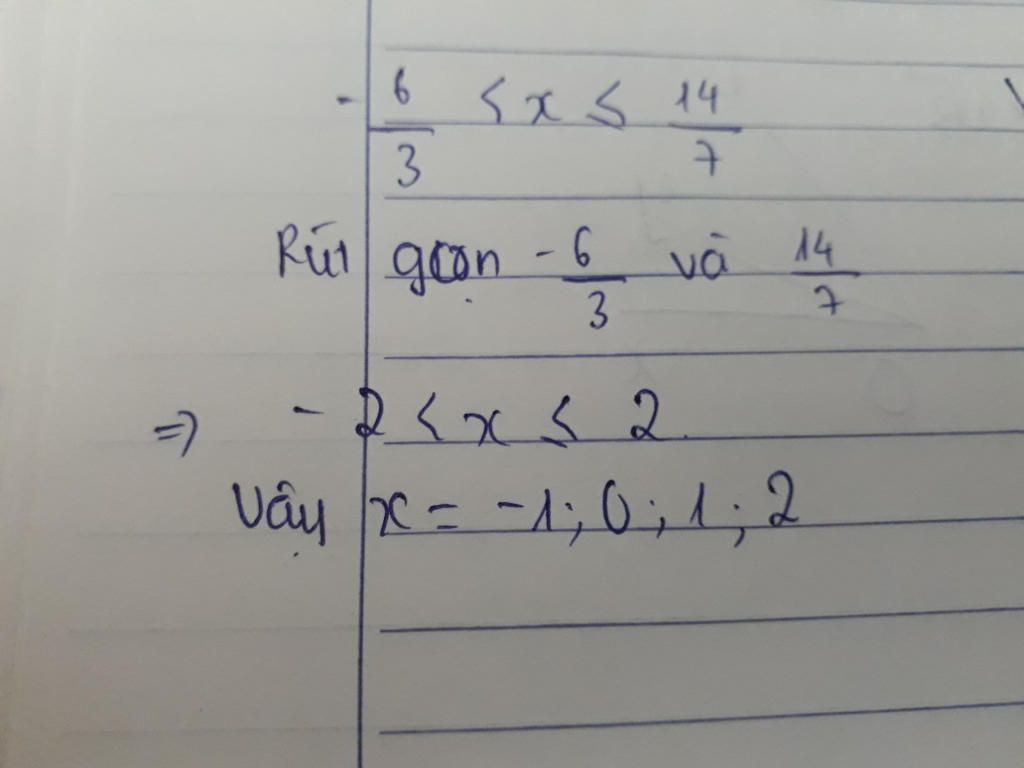 - 6/3 < x ≤ 14/7
Rút gọn - 6/3 và 14/7
=> - 2 < x ≤ 2.
Vậy x = -1; 0; 1; 2